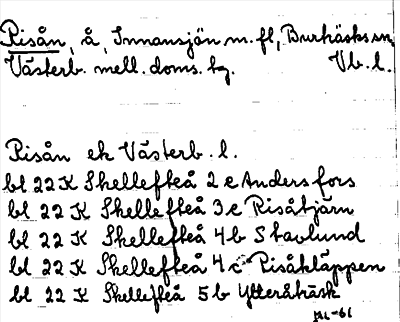 Risån, å, Innansjön m.fl, Burträsks sn,
Västerb. mell. doms. hg. Vb. l.
Risån ek Västerb. l.
bl 22 K Skellefteå 2 e Andersfors
bl 22 K Skellefteå 3 c Risåtjärn
bl 22 K Skellefteå 4 b Stavlund
bl 22 K Skellefteå 4 c Risåkläppen
bl 22 K Skellefteå 5 b Ytteråträsk